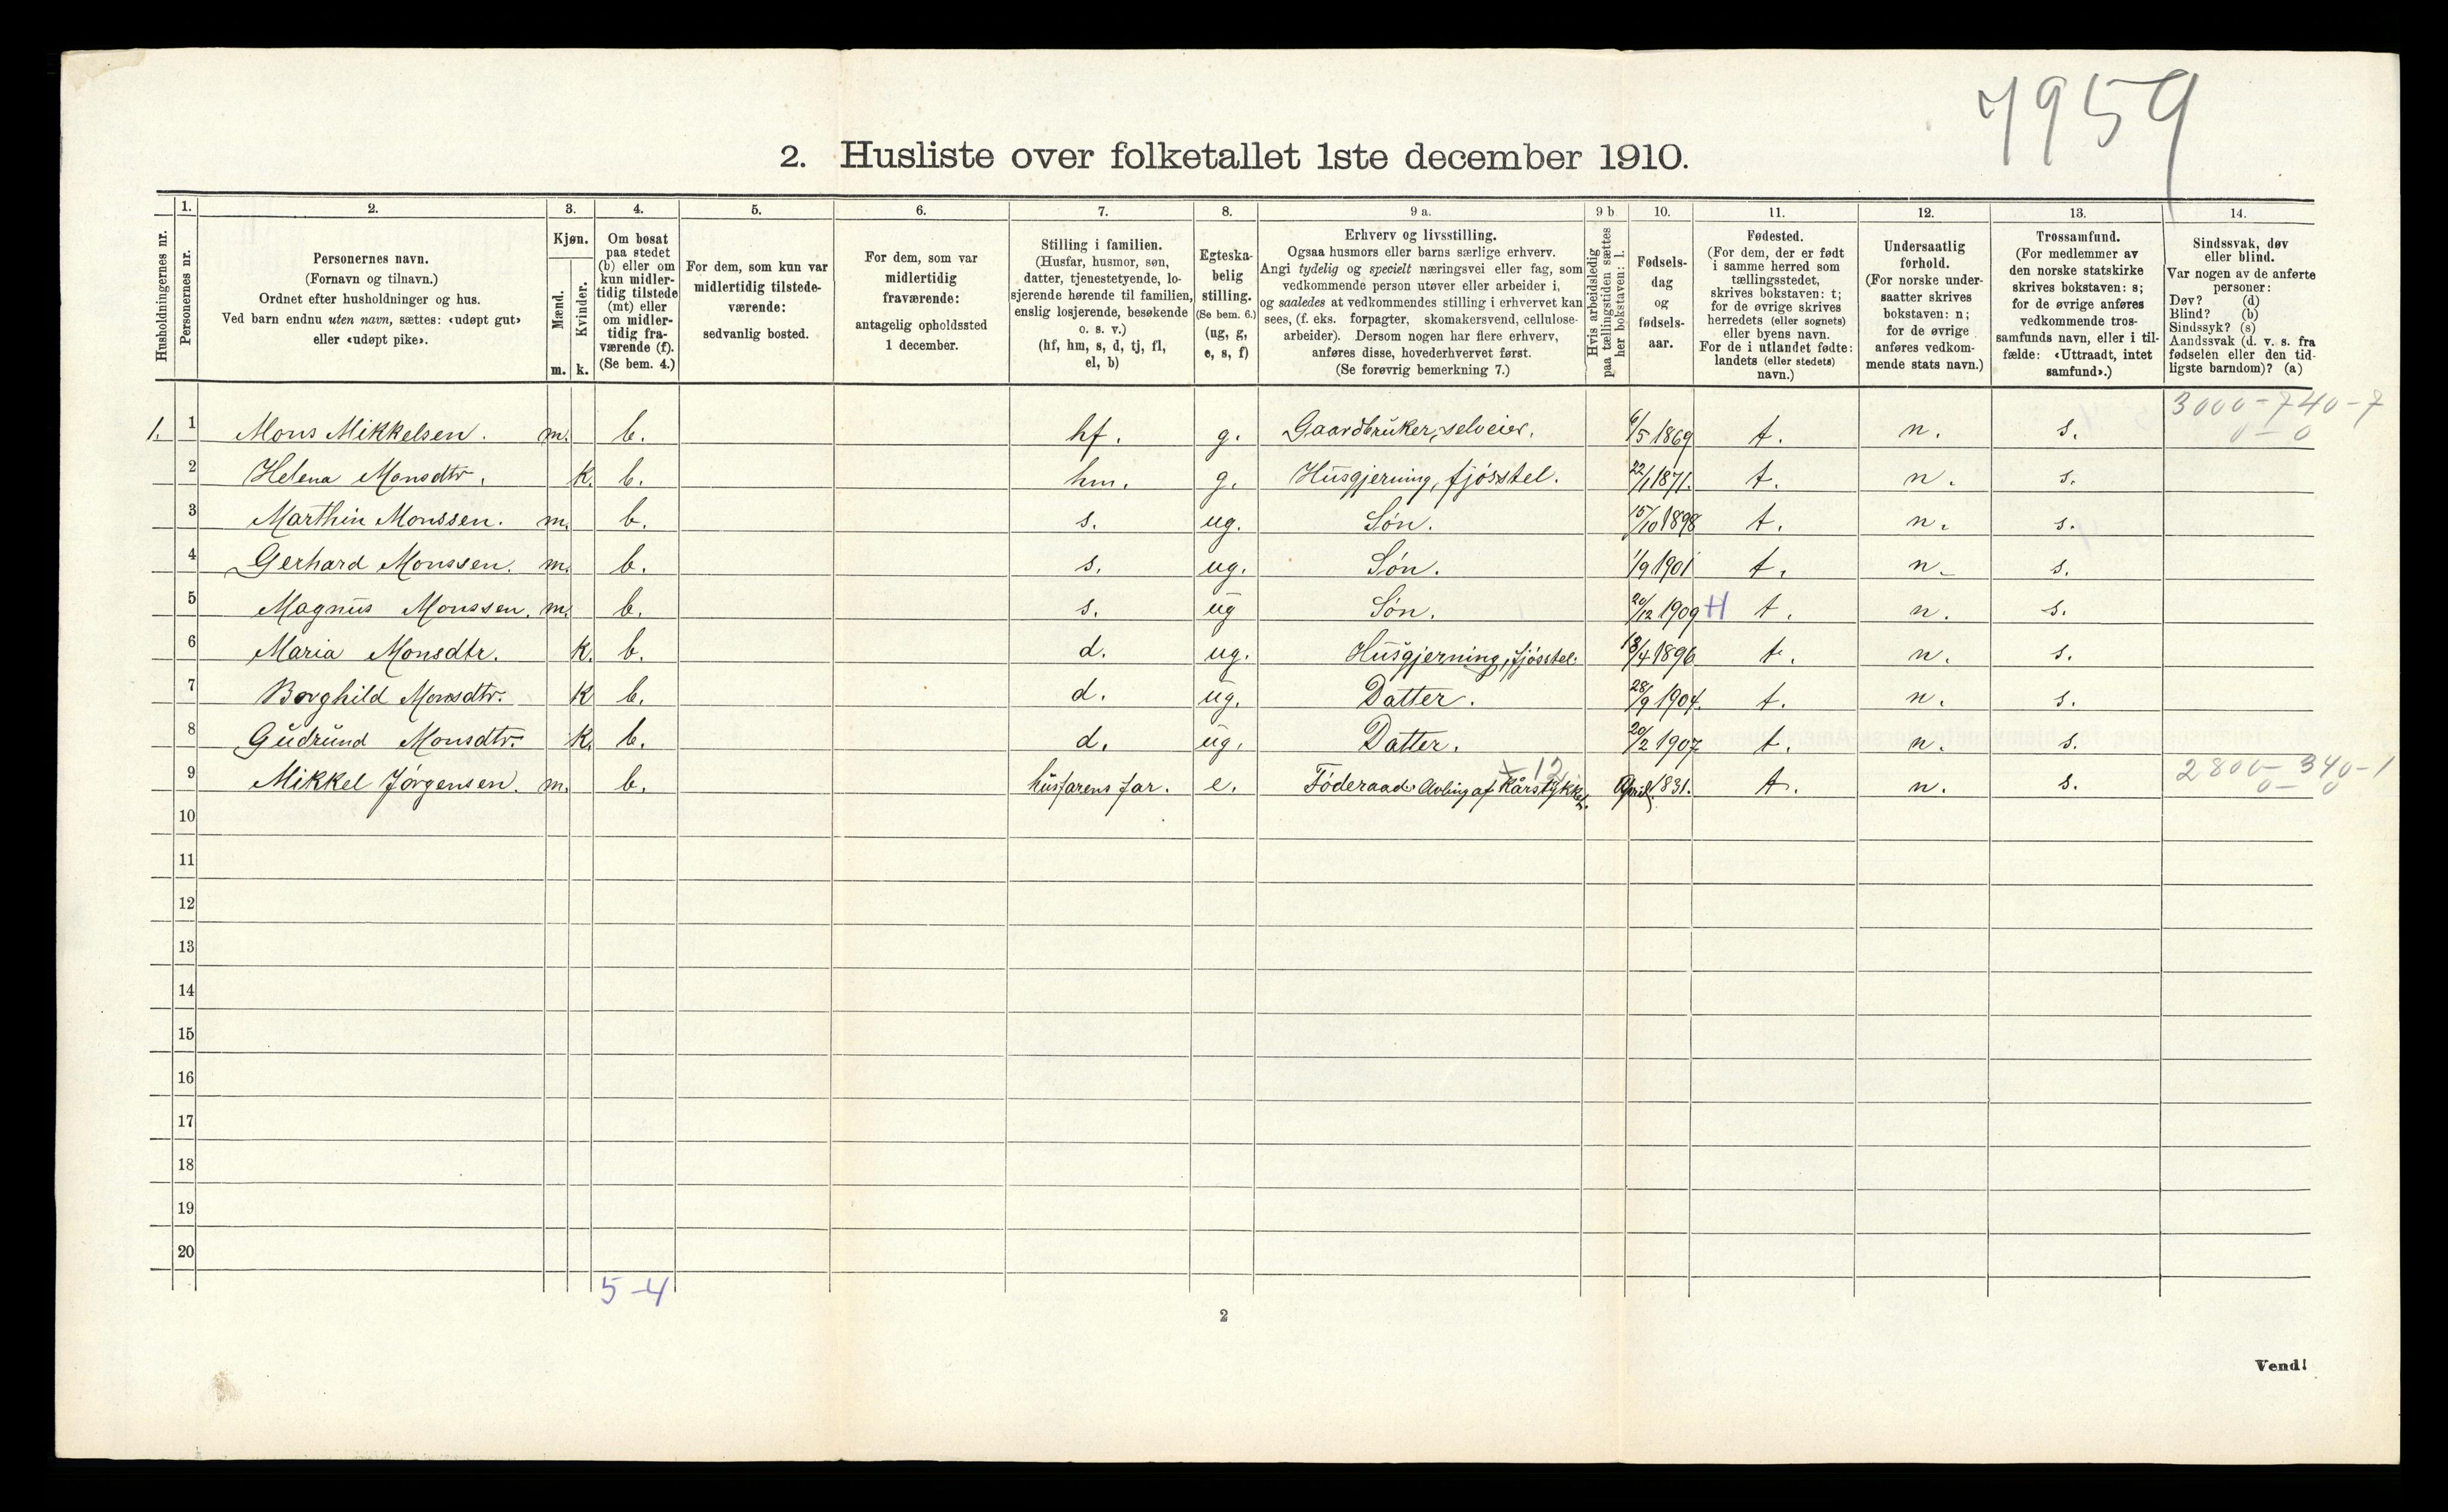 7959
2. Husliste over folketallet 1ste december 1910.
Husholdningernes nr.
1.
Personernes nr.
2.
Personernes navn.
(Fornavn og tilnavn.)
Ordnet efter husholdninger og hus.
Ved barn endnu uten navn, sættes: «udøpt gut»
eller «udøpt pike».
3.
Kjøn.
Mænd.
Kvinder.
m. k.
4.
Om bosat
paa stedet
(b) eller om
kun midler-
tidig tilstede
(mt) eller
om midler-
tidig fra-
værende (f).
(Se bem. 4.)
5.
For dem, som kun var
midlertidig tilstede-
værende:
sedvanlig bosted.
6.
For dem, som var
midlertidig
fraværende:
antagelig opholdssted
1 december.
7.
Stilling i familien.
(Husfar, husmor, søn,
datter, tjenestetyende, lo-
sjerende hørende til familien,
enslig losjerende, besøkende
o. s. v.)
(hf, hm, s, d, tj, fl,
el, b)
8.
Egteska-
belig
stilling.
(Se bem. 6.)
(ug, g,
e, s, f)
9 a.
Erhverv og livsstilling.
Ogsaa husmors eller barns særlige erhverv.
Angi tydelig og specielt næringsvei eller fag, som
vedkommende person utøver eller arbeider i,
og saaledes at vedkommendes stilling i erhvervet kan
sees, (f. eks. forpagter, skomakersvend, cellulose-
arbeider). Dersom nogen har flere erhverv,
anføres disse, hovederhvervet først.
(Se forøvrig bemerkning 7.)
9 b
Hvis arbeidsledig
paa tællingstiden sættes
her bokstaven: l.
10.
Fødsels-
dag
og
fødsels-
aar.
11.
Fødested.
(For dem, der er født
i samme herred som
tællingsstedet,
skrives bokstaven: t;
for de øvrige skrives
herredets (eller sognets)
eller byens navn.
For de i utlandet fødte:
landets (eller stedets)
navn.)
12.
Undersaatlig
forhold.
(For norske under-
saatter skrives
bokstaven: n;
for de øvrige
anføres vedkom-
mende stats navn.)
13.
Trossamfund.
(For medlemmer av
den norske statskirke
skrives bokstaven: s;
for de øvrige anføres
vedkommende tros-
samfunds navn, eller i til-
fælde: «Uttraadt, intet
samfund».)
14.
Sindssvak, døv
eller blind.
Var nogen av de anførte
personer:
Døv? (d)
Blind? (b)
Sindssyk? (s)
Aandssvak (d. v. s. fra
fødselen eller den tid-
ligste barndom)? (a)
3000-740-7
0-0
1. 1 Mons Mikkelsen. m. b. hf. g. Gaardbruker, selveier. 6/5 1869 t. n. s.
2 Helena Monsdtr. k. b. hm. g. Husgjerning, fjósstel. 22/1 1871. t. n. s.
3 Marthin Monssen. m. b. s. ug. Søn. 15/10 1898 t. n. s.
4 Gerhard Monssen. m. b. s. ug. Søn. 1/9 1901 t. n. s.
5 Magnus Monssen. m. b. s. ug Søn. 20/12 1909 H t. n. s.
6 Maria Monsdtr. k. b. d. ug. Husgjerning, fjósstel. 18/4 1896 t. n. s.
7 Borghild Monsdtr. k b. d. ug. Datter. 28/9 1904. t. n. s.
8 Gudrund Monsdtr. k. b. d. ug. Datter. 20/2 1907 t. n. s.
x-12
2800-340-1
0-0
9 Mikkel Jørgensen. m. b. husfarens far. e. Föderaad. Avling af Kårstykket. April 1831. t. n. s.
10
11
12
13
14
15
16
17
18
19
20
5-4
2
Vend!